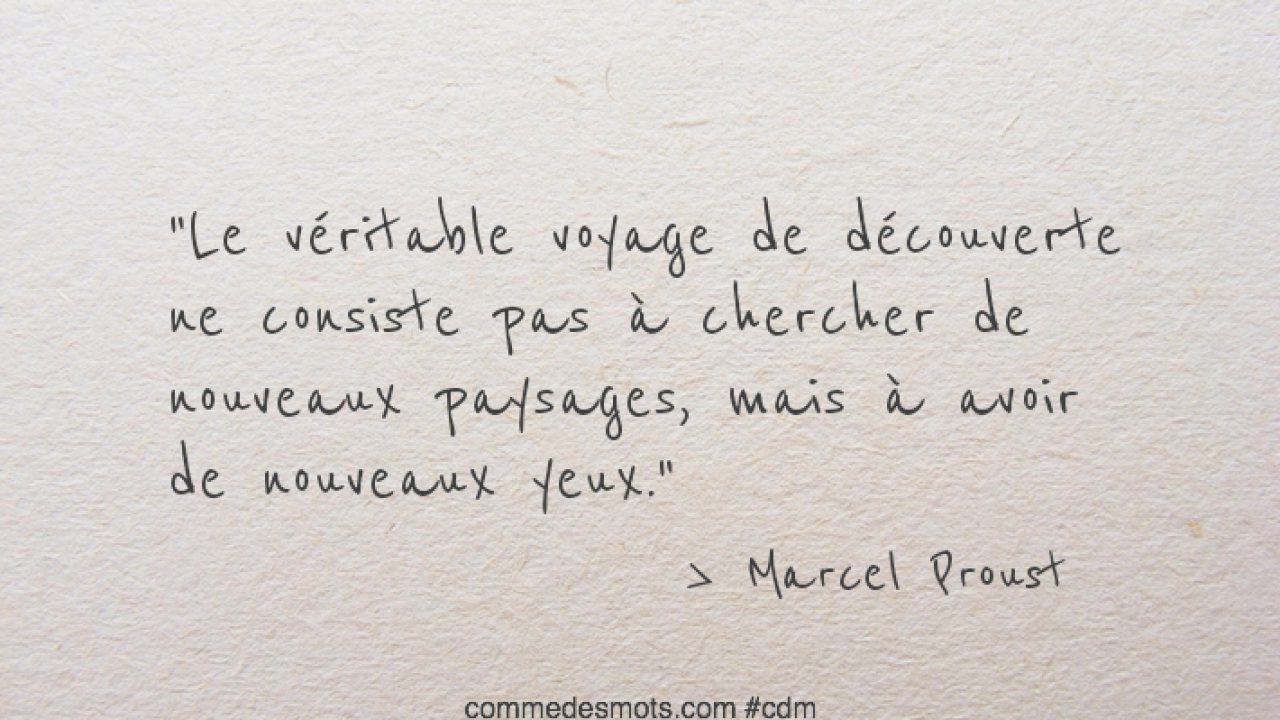 "Le véritable voyage de découverte
ne consiste pas à chercher de
nouveaux paysages, mais à avoir
de nouveaux yeux."
> Marcel Proust
commedesmots.com #cdm